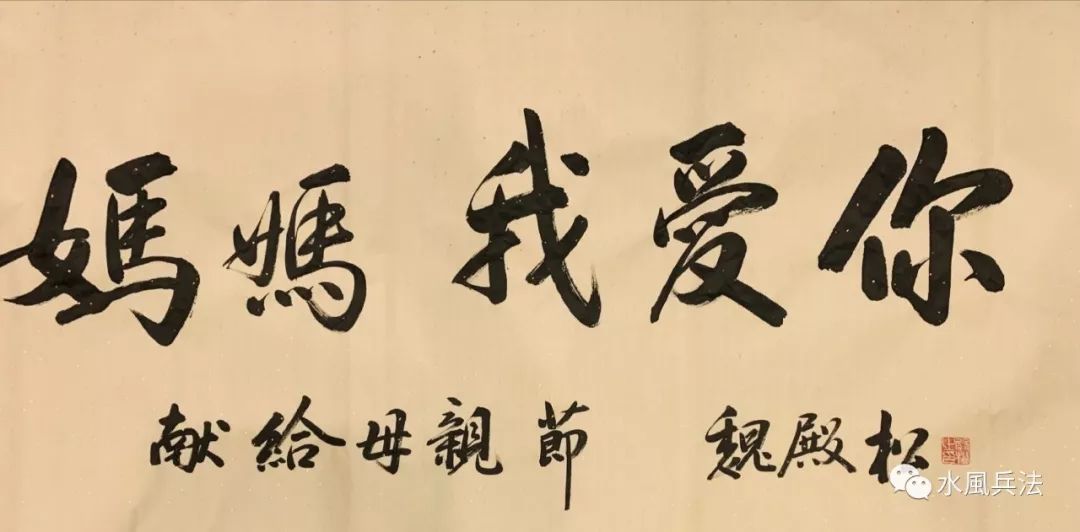 媽媽 我愛你
献给母親節 魏殿松
水風兵法